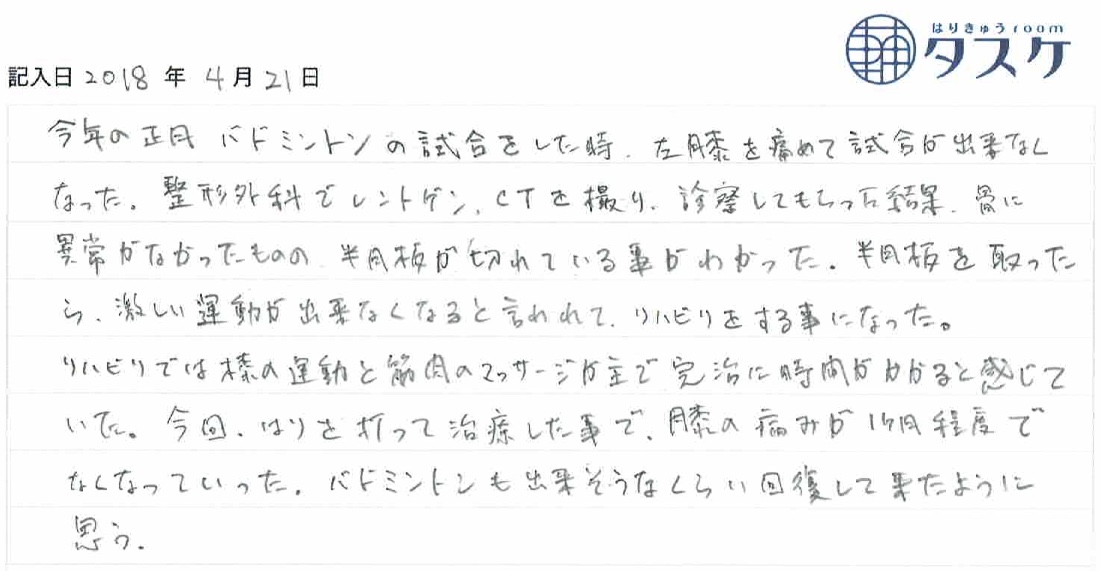 はりきゅうroom
タスケ
記入日 2018 年 4 月 21 日
今年の正月 バドミントンの試合をした時、左膝を痛めて試合が出来なく
なった。整形外科でレントゲン、CTを撮り、診察してもらった結果、骨に
異常がなかったものの 半月板が切れている事がわかった。半月板を取った
ら、激しい運動が出来なくなると言われて、リハビリをする事になった。
リハビリでは膝の運動と筋肉のマッサージが主で完治に時間がかかると感じて
いた。今回、はりを打って治療した事で、膝の痛みが1ヶ月程度で
なくなっていった。バドミントンも出来そうなくらい回復して来たように
思う。